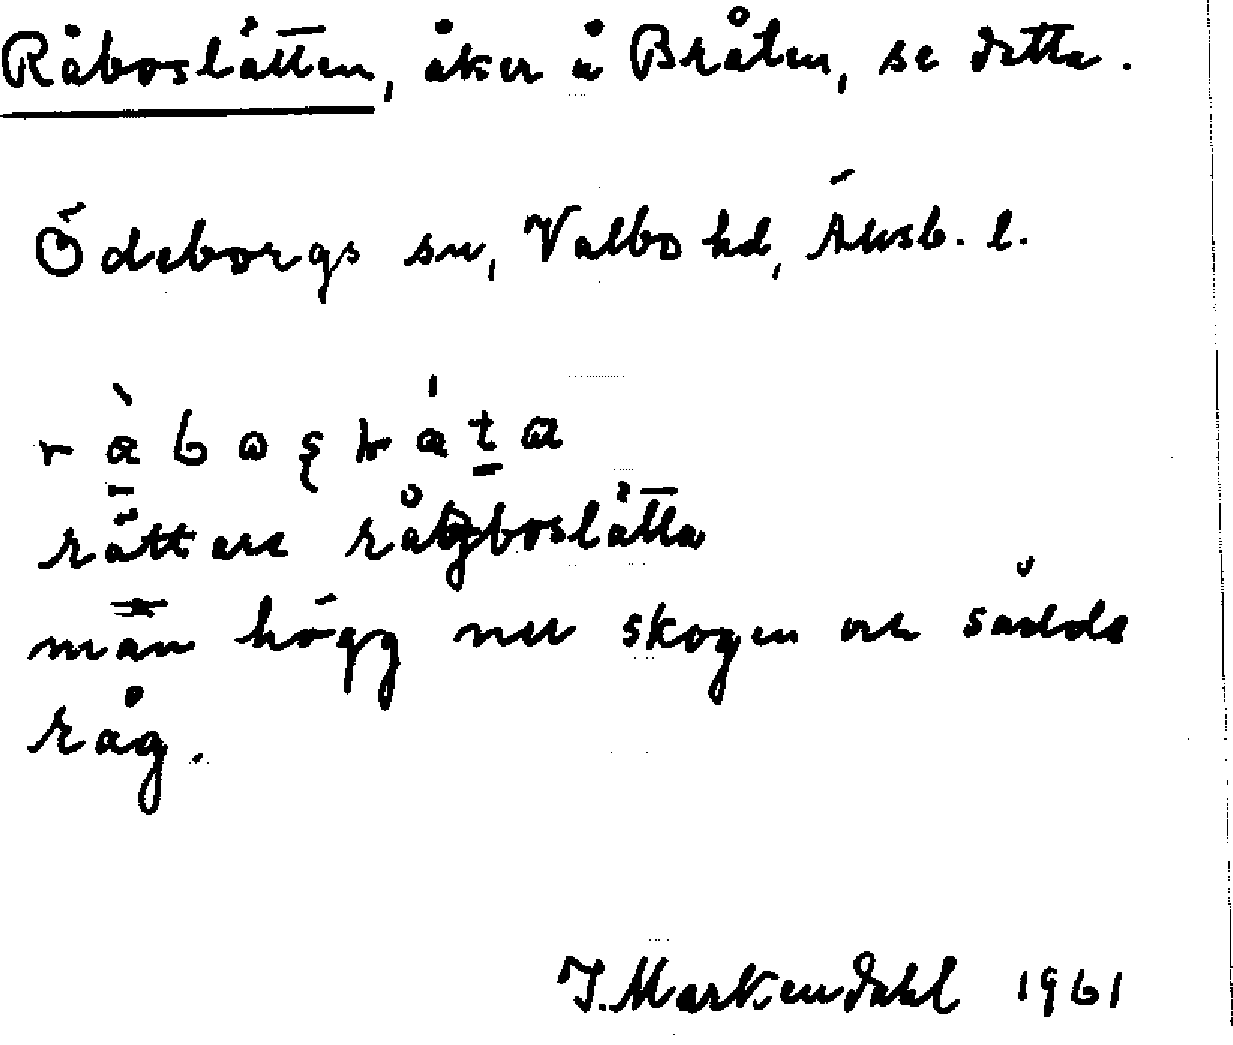 Råboslätten, åker å Bråten, se detta.
Ödeborgs sn, Valbo hd, Älvsb. l.
rättare rågboslätta
man högg ner skogen och sådde
råg.
J. Markendahl 1961